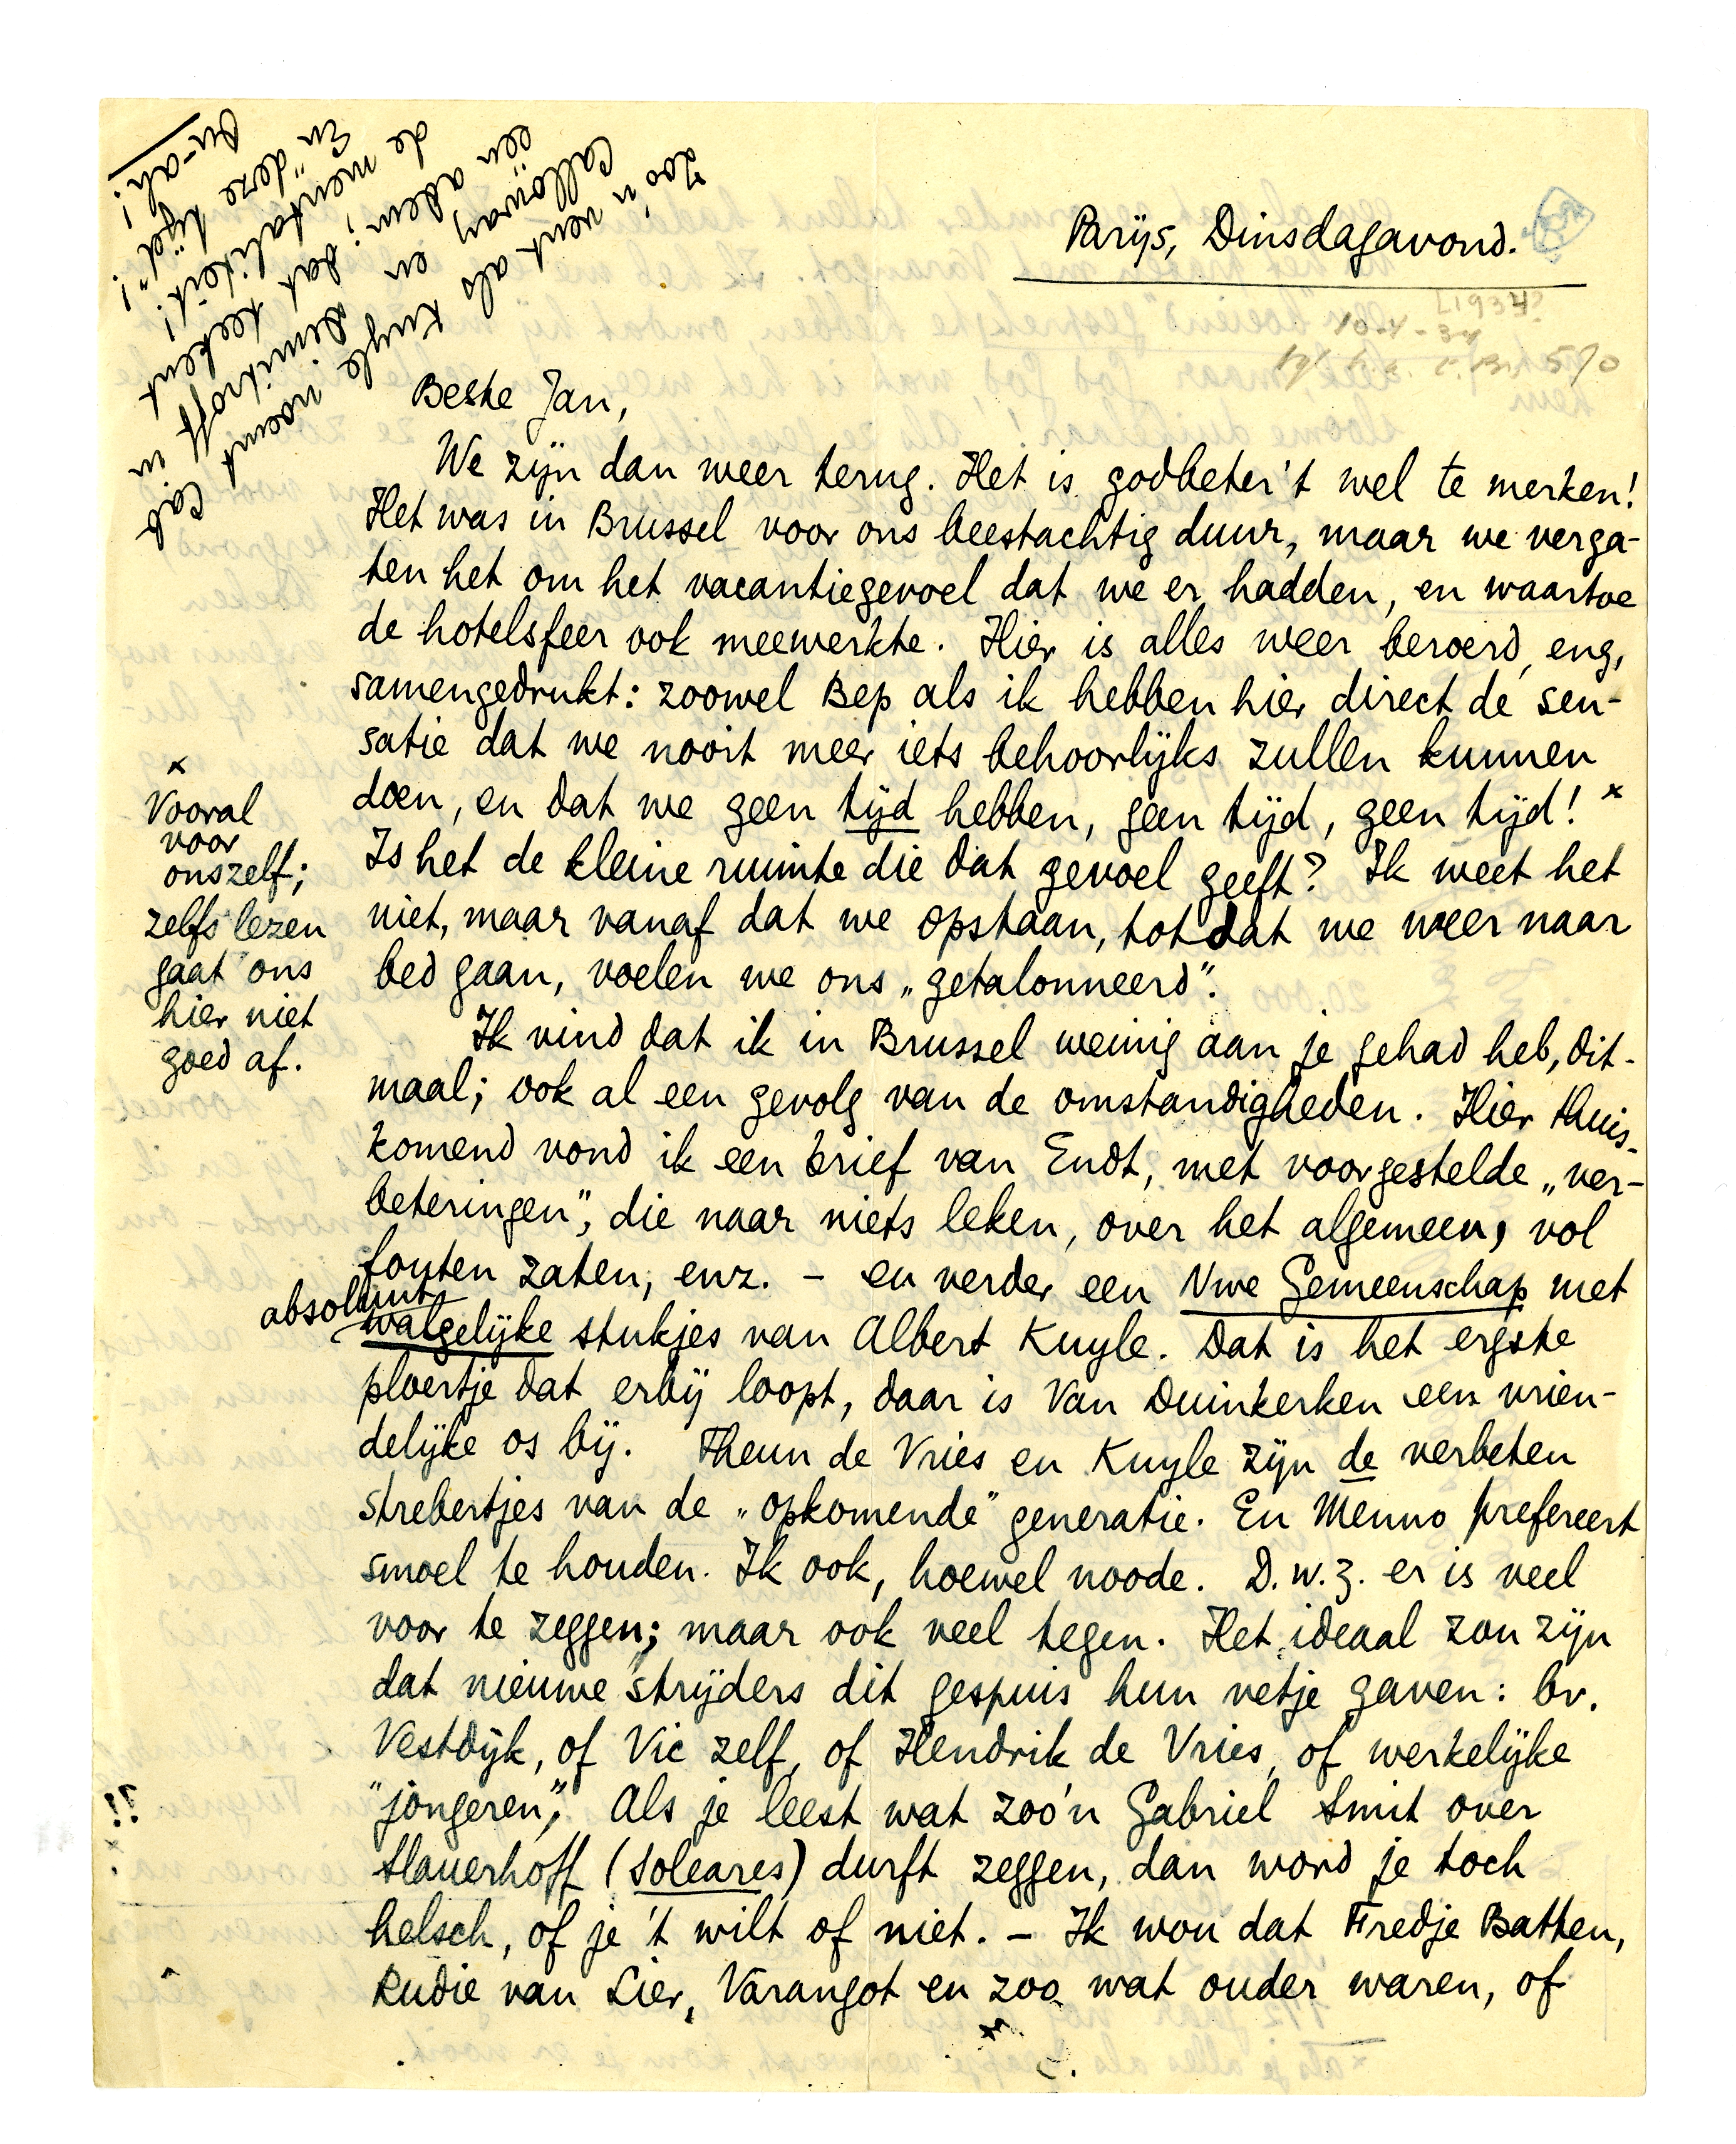 Parijs, Dinsdagavond.
[1934?
10-4-34
570
Beste Jan,
We zijn dan weer terug. Het is godbeter't wel te merken!
Het was in Brussel voor ons beestachtig duur, maar we verga-
ten het om het vacantiegevoel dat we er hadden, en waartoe
de hotelsfeer ook meewerkte. Hier is alles weer beroerd, eng,
samengedrukt: zoowel Bep als ik hebben hier direct de sen-
satie dat we nooit meer iets behoorlijks zullen kunnen
doen, en dat we geen tijd hebben, geen tijd, geen tijd! x
Is het de kleine ruimte die dat gevoel geeft? Ik weet het
niet, maar vanaf dat we opstaan, totdat we weer naar
bed gaan, voelen we ons „getalonneerd".
Ik vind dat ik in Brussel weinig aan je gehad heb, dit-
maal; ook al een gevolg van de omstandigheden. Hier thuis-
komend vond ik een brief van Endt, met voorgestelde „ver-
beteringen", die naar niets leken, over het algemeen, vol
fouten zaten, enz. – en verder een Nwe Gemeenschap met
absoluut
walgelijke stukjes van Albert Kuyle. Dat is het ergste
ploertje dat erbij loopt, daar is Van Duinkerken een vrien-
delijke os bij. Theun de Vries en Kuyle zijn de verbeten
strebertjes van de „opkomende" generatie. En Menno prefereert
smoel te houden. Ik ook, hoewel noode. D.w.z. er is veel
voor te zeggen; maar ook veel tegen. Het ideaal zou zijn
dat nieuwe strijders dit gespuis hun vetje gaven: bv.
Vestdijk, of Vic zelf, of Hendrik de Vries, of werkelijke
"jongeren". Als je leest wat zoo'n Gabriel Smit over
Slauerhoff (Soleares) durft zeggen, dan word je toch
helsch, of je 't wilt of niet. – Ik wou dat Fredje Batten,
Rudie van Lier, Varangot en zoo wat ouder waren, of
x
Vooral
voor
onszelf;
zelfs lezen
gaat ons
hier niet
goed af.
Zoo'n vent als Kuyle noemt Cab
Calloway en Dimitroff in
één adem; dat teekent
de mentaliteit!
En "deze tijd"!
Bu-ah!